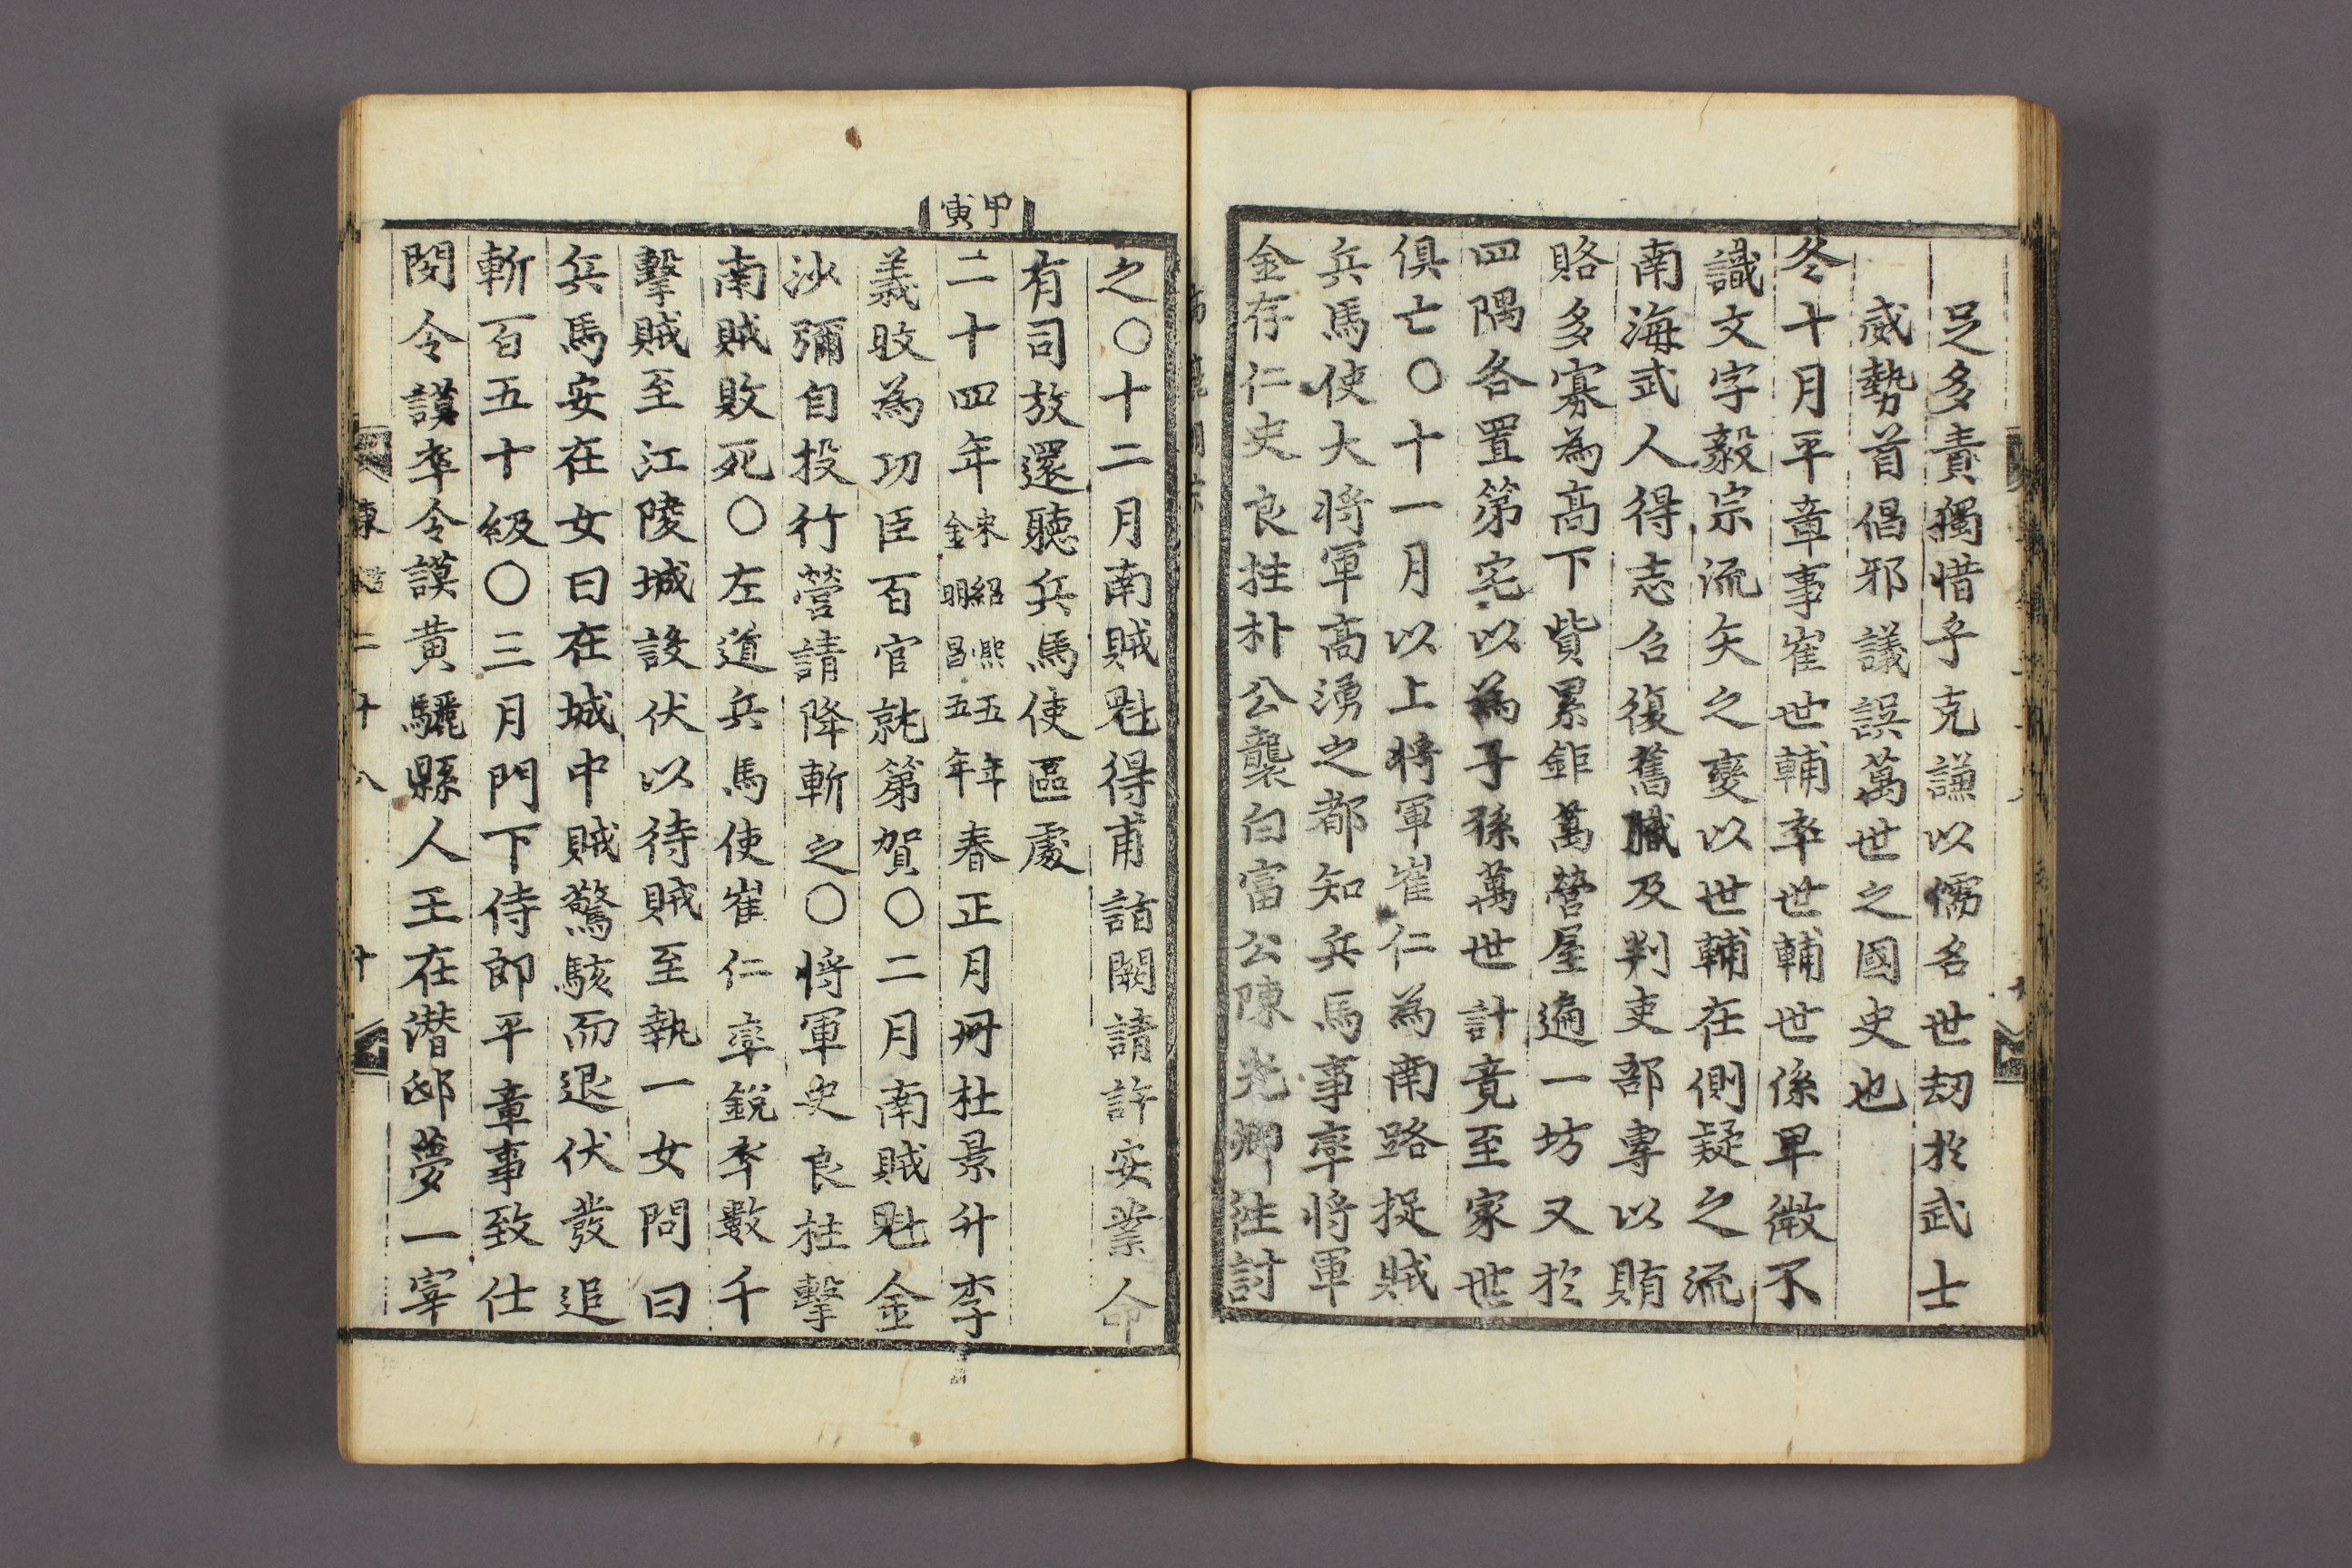 足多責獨惜乎克謙以儒名世刼於武士
威勢首倡邪議誤萬世之國史也
冬十月平章事崔世輔卒世輔世係卑微不
識文字毅宗流矢之變以世輔在側疑之流
南海武人得志召復舊職及判吏部專以賄
賂多寡為高下貲累鉅萬營屋遍一坊又於
四隅各置第宅以為子孫萬世計竟至家世
俱亡〇十一月以上將軍崔仁為南路捉賊
兵馬使大將軍高湧之都知兵馬事率將軍
金存仁史良柱朴公襲白富公陳光卿徃討
甲寅
之〇十二月南賊魁得甫詣闕請許安業命
有司放還聽兵馬使區處
二十四年宋紹熙五年金明昌五年春正月冊杜景升李
義旼為功臣百官就第賀〇二月南賊魁金
沙彌自投行營請降斬之〇將軍史良柱擊
南賊敗死〇左道兵馬使崔仁率銳卒數千
擊賊至江陵城設伏以待賊至執一女問曰
兵馬安在女曰在城中賊驚駭而退伏發追
斬百五十級〇三月門下侍郎平章事致仕
閔令謨卒令謨黃驪縣人王在潜邸夢一宰
二十八
十